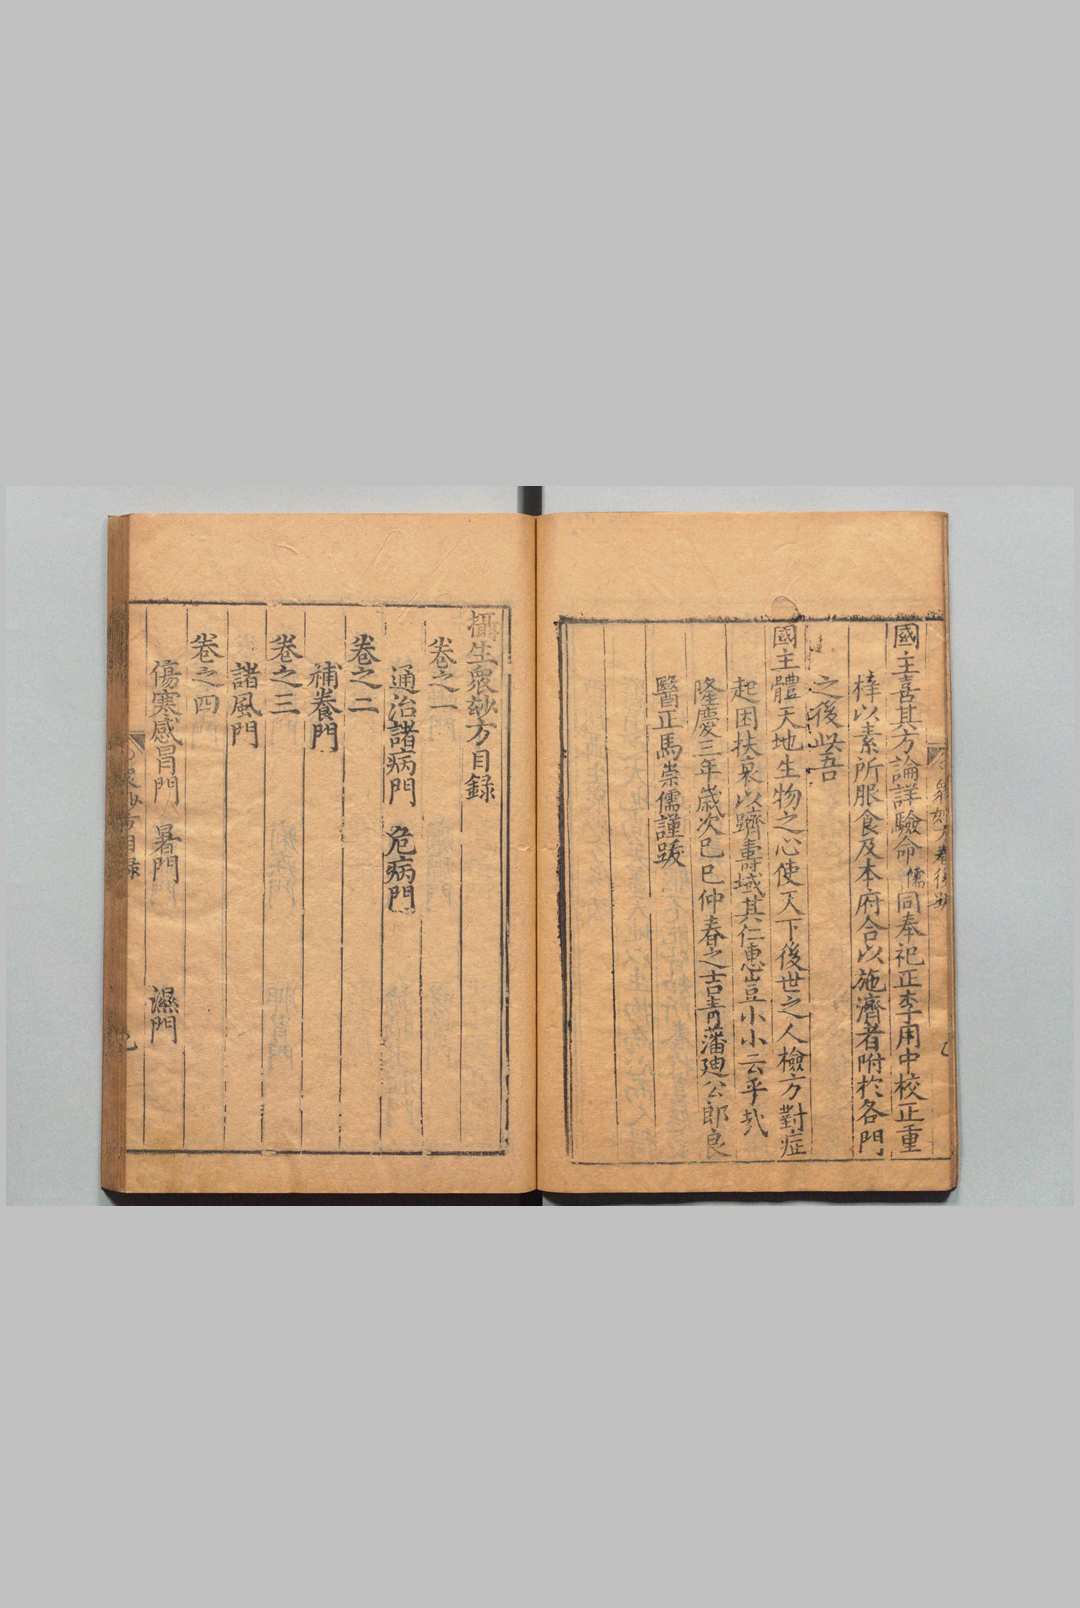 國主喜其方論詳驗命儒同奉祀正李用中校正重
梓以素所服食及本府合以施濟者附於各門
之後此吾
國主體天地生物之心使天下後世之人檢方對症
起困扶衰以躋壽域其仁惠豈小小云乎哉
隆慶三年歲次己巳仲春之吉青藩迪公郎良
醫正馬崇儒謹跋
攝生衆妙方目録
卷之一
通治諸病門 危病門
卷之二
補養門
卷之三
諸風門
卷之四
傷寒感冒門 暑門 濕門
衆妙方目録